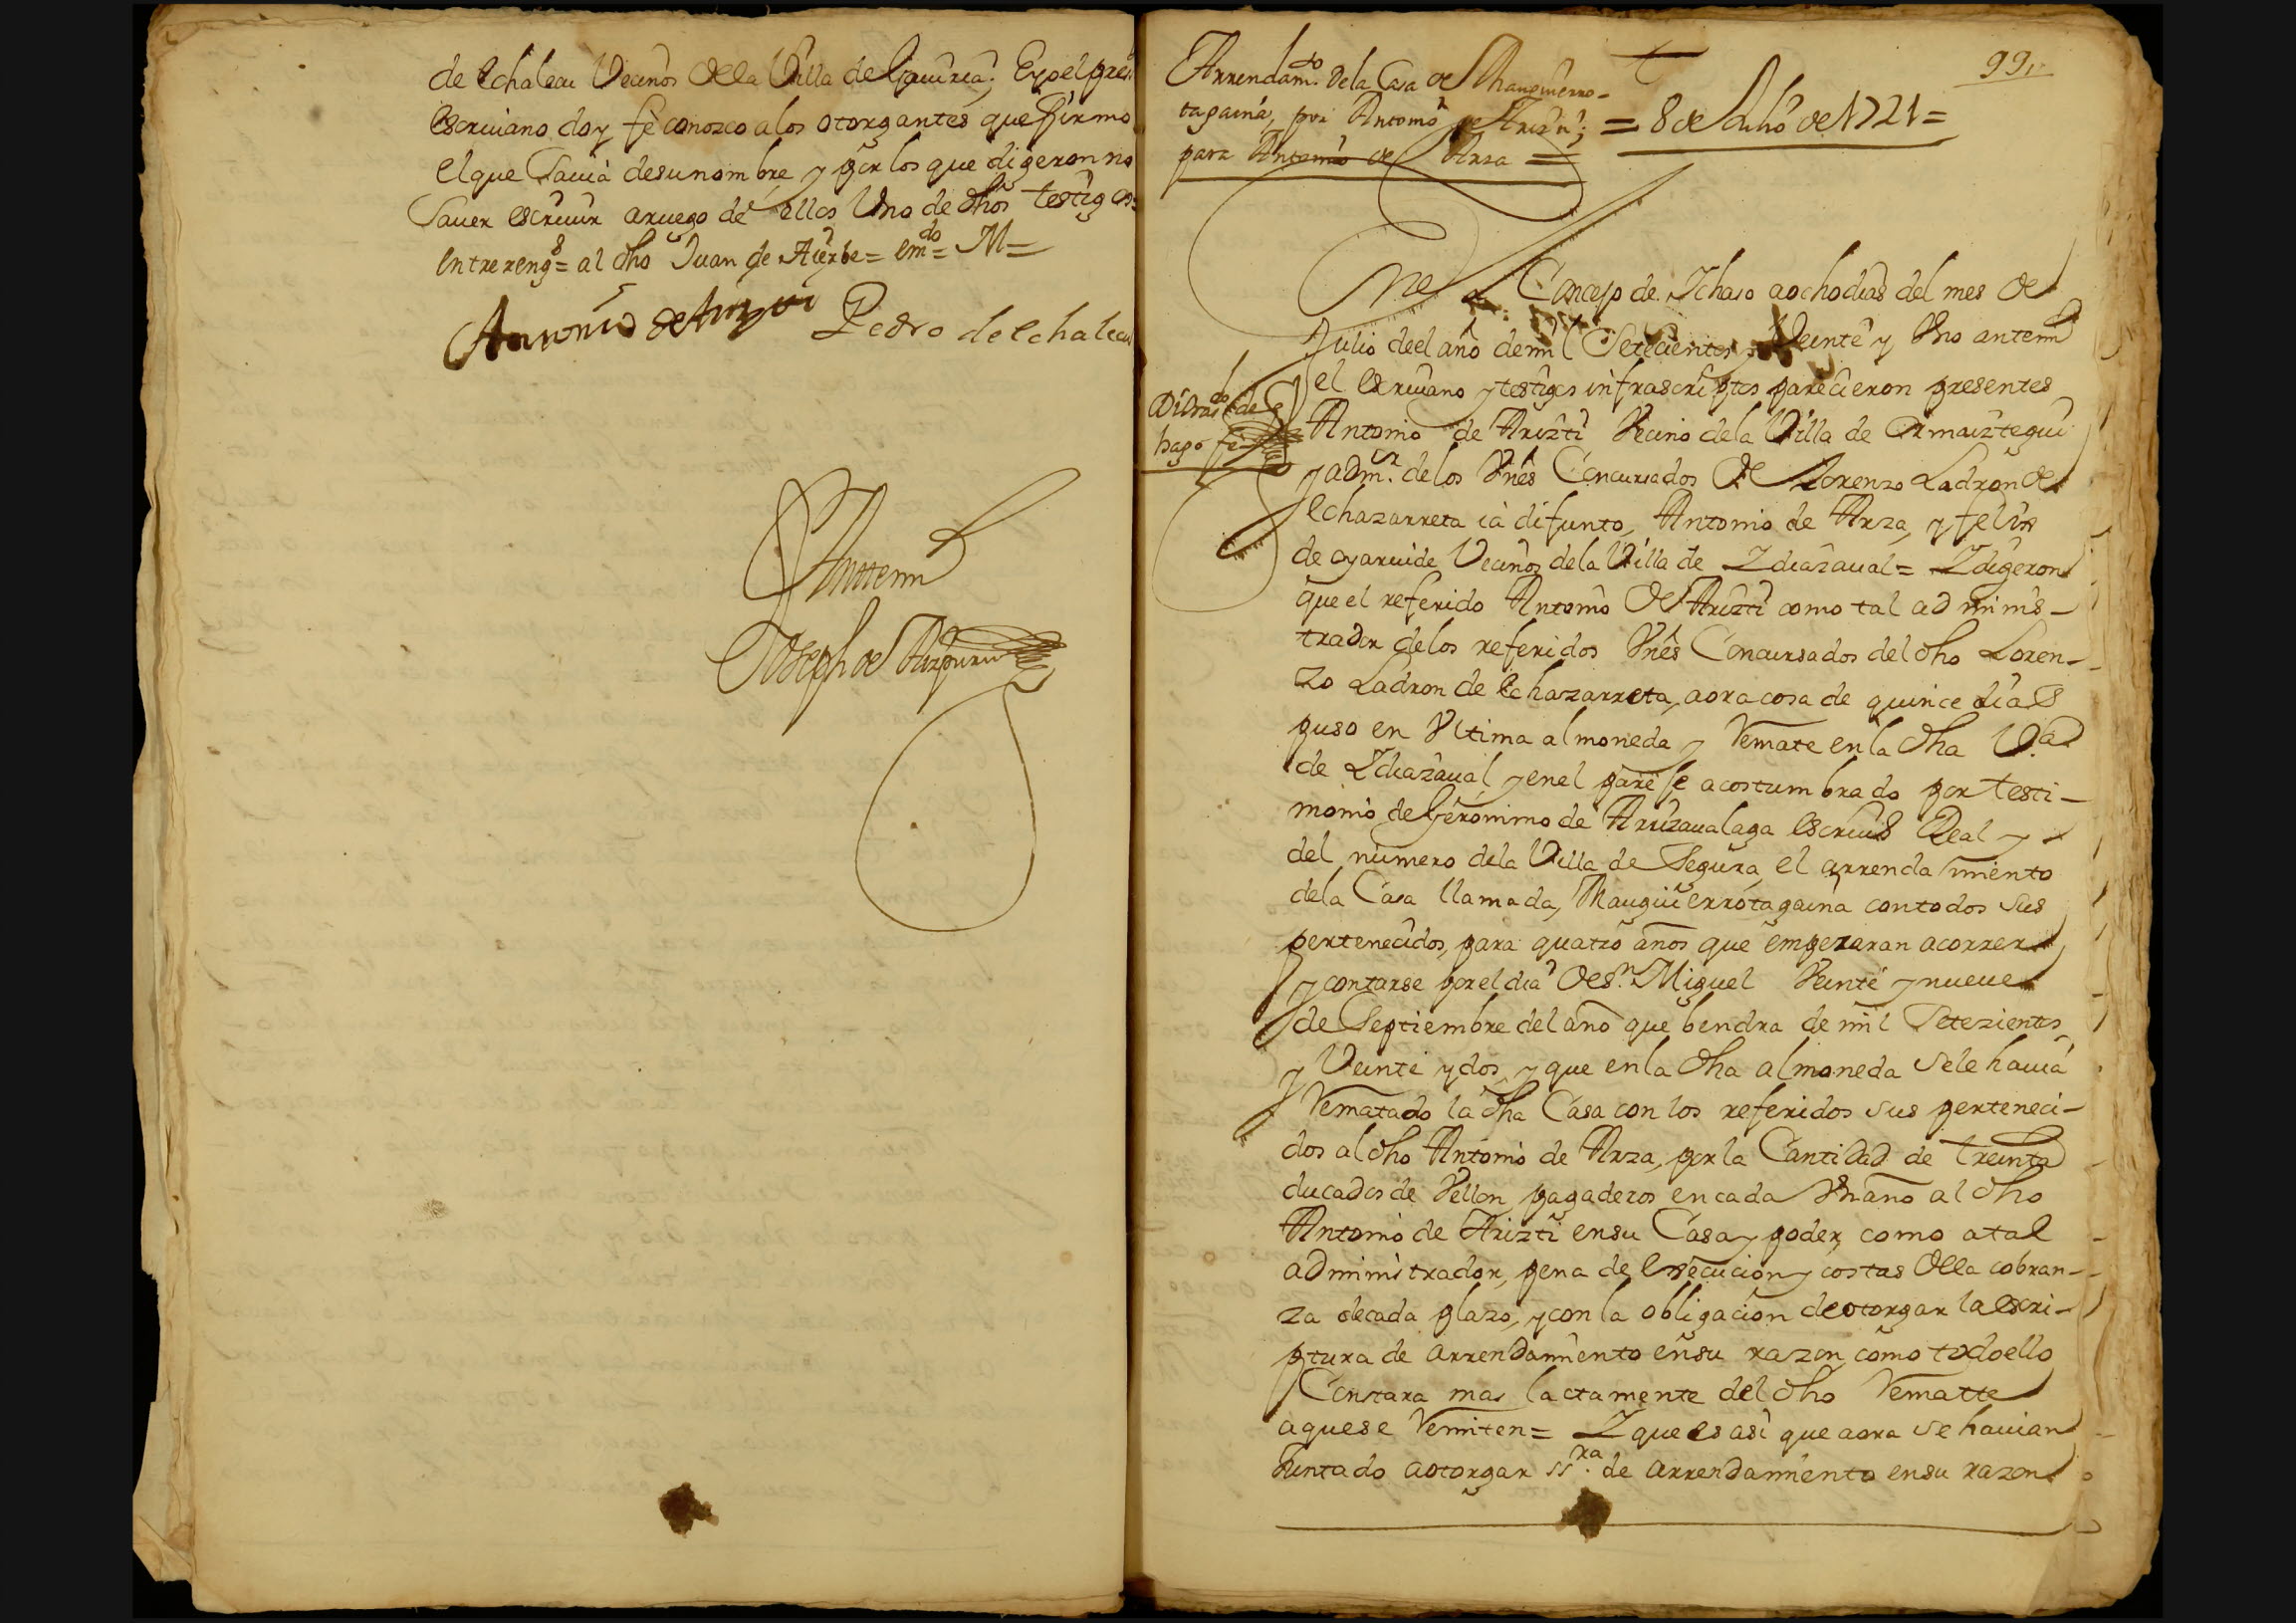 de echaleau Vecinos dela Villa de Gaviria; Eyo el press.
escrivano doy fè conozco a los otorgantes que firmo
el que Savia desu nombre y por los que digeron no
Saver escrivir aruego de ellos Uno de dhos testigos=
entrereng.s= al dho Juan de Aierbe= em.do= M=
Antonio de Pedro de echaleau
Anttemi
Joseph de Aizpuru
99,,
Arrendam.to dela Casa de Mauguierro-
tagaina, por Antonio de Arizti;
para Antonio de Arza =
= 8 de Julio de 1721=
Concejo de Ichaso a ocho dias del mes de
Julio de el año de mil Setecientos y Veinte y Uno antemi
el escrivano y testigos infrascriptos parecieron presentes
hago fè
Antonio de Arizti Vecino dela Villa de Ormaiztegui
y adm.or delos Vnês Concursados de Lorenzo Ladron de
echazarreta ia difunto, Antonio de Arza, y felix
de oyarvide Vecinos dela Villa de Idiazaval= I digeron
que el referido Antonio de Arizti como tal adminis-
trador delos referidos Vnês Concursados del dho Loren-
zo Ladron de echazarreta, aora cosa de quince dias
puso en Ultima almoneda y Remate en la dha V.a
de Idiazaval, y en el paresse acostumbrado por testi-
monio de Gerónimo de Arrizavalaga escriv.o Real y
del número dela Villa de Segura, el arrendamiento
dela Casa llamada, Mauguierrotagaina con todos sus
pertenecidos, para quatro años que empezaran acorrer
y contarse por el dia de S.n Miguel Veinte y nueve
de Septiembre del año que bendra de mil Setezientos
y Veinte y dos, y que en la dha almoneda sele havia
Rematado la dha Casa con los referidos sus perteneci-
dos al dho Antonio de Arza, por la Cantidad de treinta
ducados de Vellon, pagaderos en cada Un año al dho
Antonio de Arizti en su Casa y poder, como atal
administrador, pena de execucion y costas dela cobran-
za decada plazo, y con la obligacion de otorgar la escri-
ptura de arrendamiento en su razon, como todo ello
Constara mas lactamente del dho Rematte
a que se Remiten= I que es asi que aora se havian
Juntado a otorgar ss.ra de arrendamiento en su razon